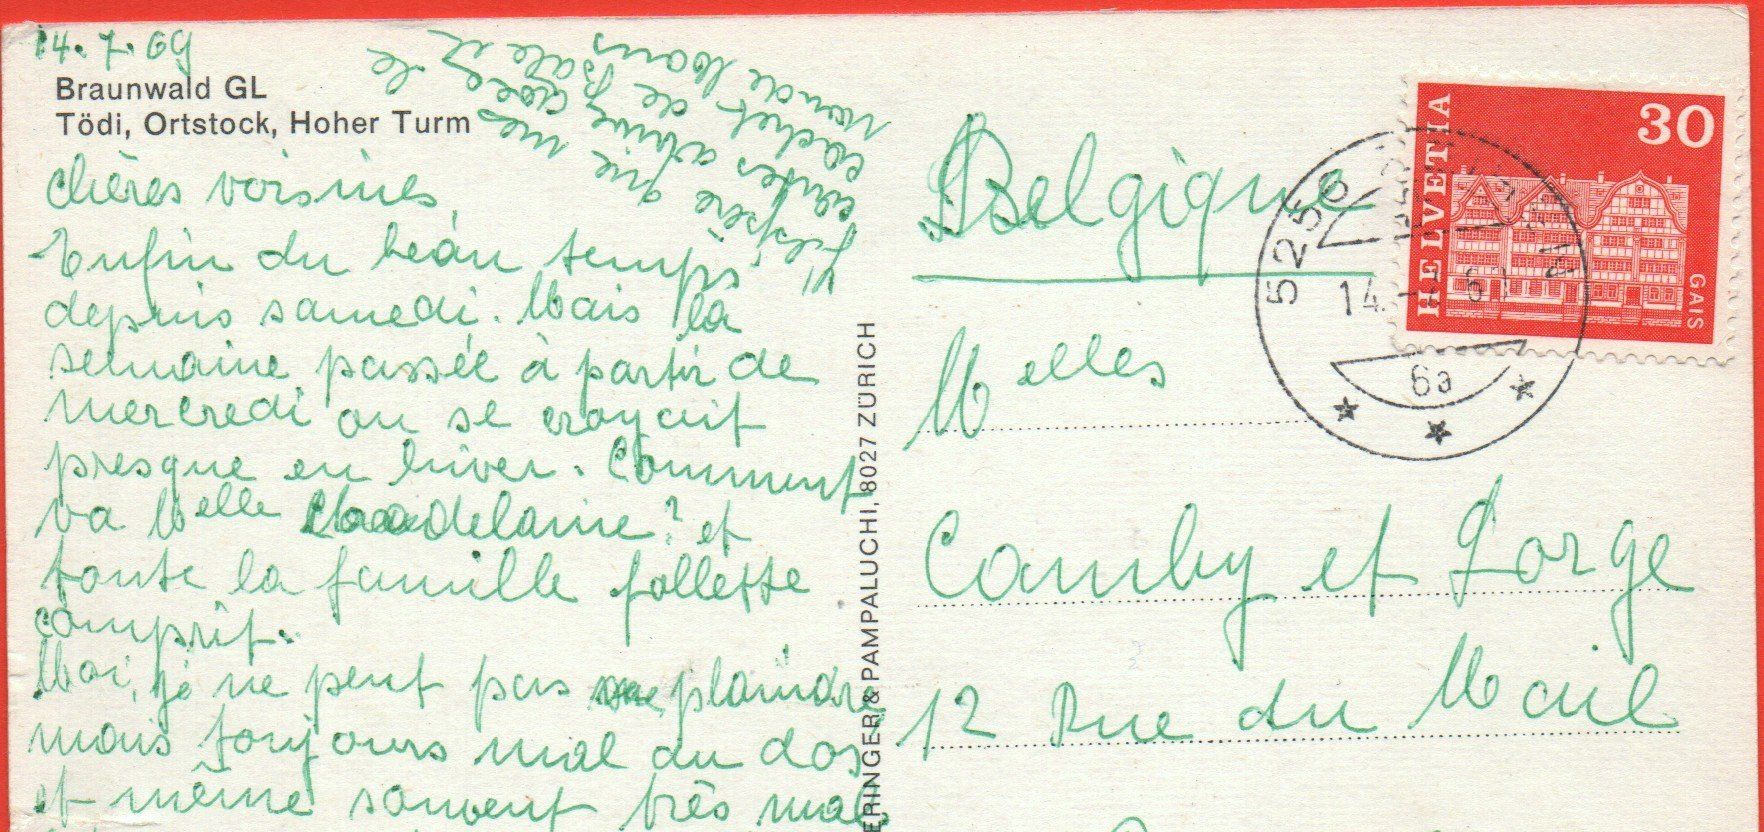 14.7.69
Braunwald GL
Tödi, Ortstock, Hoher Turm
chères voisines,
Enfin du beau temps
depuis samedi. Mais la
semaine passée à partir de
mercredi on se croyait
presque en hiver. Comment
va Melle Madelaine? et
toute la famille follette
comprit.
Moi, je ne peut pas me plaindre
mais toujours mal au dos
et même souvent très mal
J'espère que mes
cartes avec le
cachet de Bale et
ERINGER & PAMPALUCHI, 8027 ZÜRICH
Belgique
Melles
Camby et Lorge
12 Rue du Mail
HELVETIA
30
GAIS
5256
14.-7.69
6a